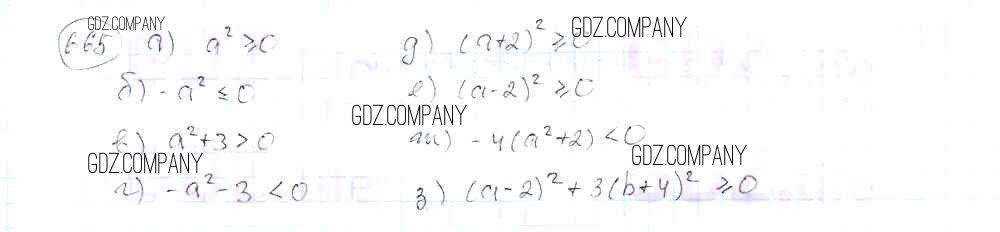 GDZ.COMPANY
665 а) a² ≥ 0
б) -a² ≤ 0
в) a² + 3 > 0
GDZ.COMPANY
г) -a² - 3 < 0
GDZ.COMPANY
д) (a+2)² ≥ 0
е) (a-2)² ≥ 0
GDZ.COMPANY
ж) -4(a²+2) < 0
GDZ.COMPANY
з) (a-2)² + 3(b+4)² ≥ 0